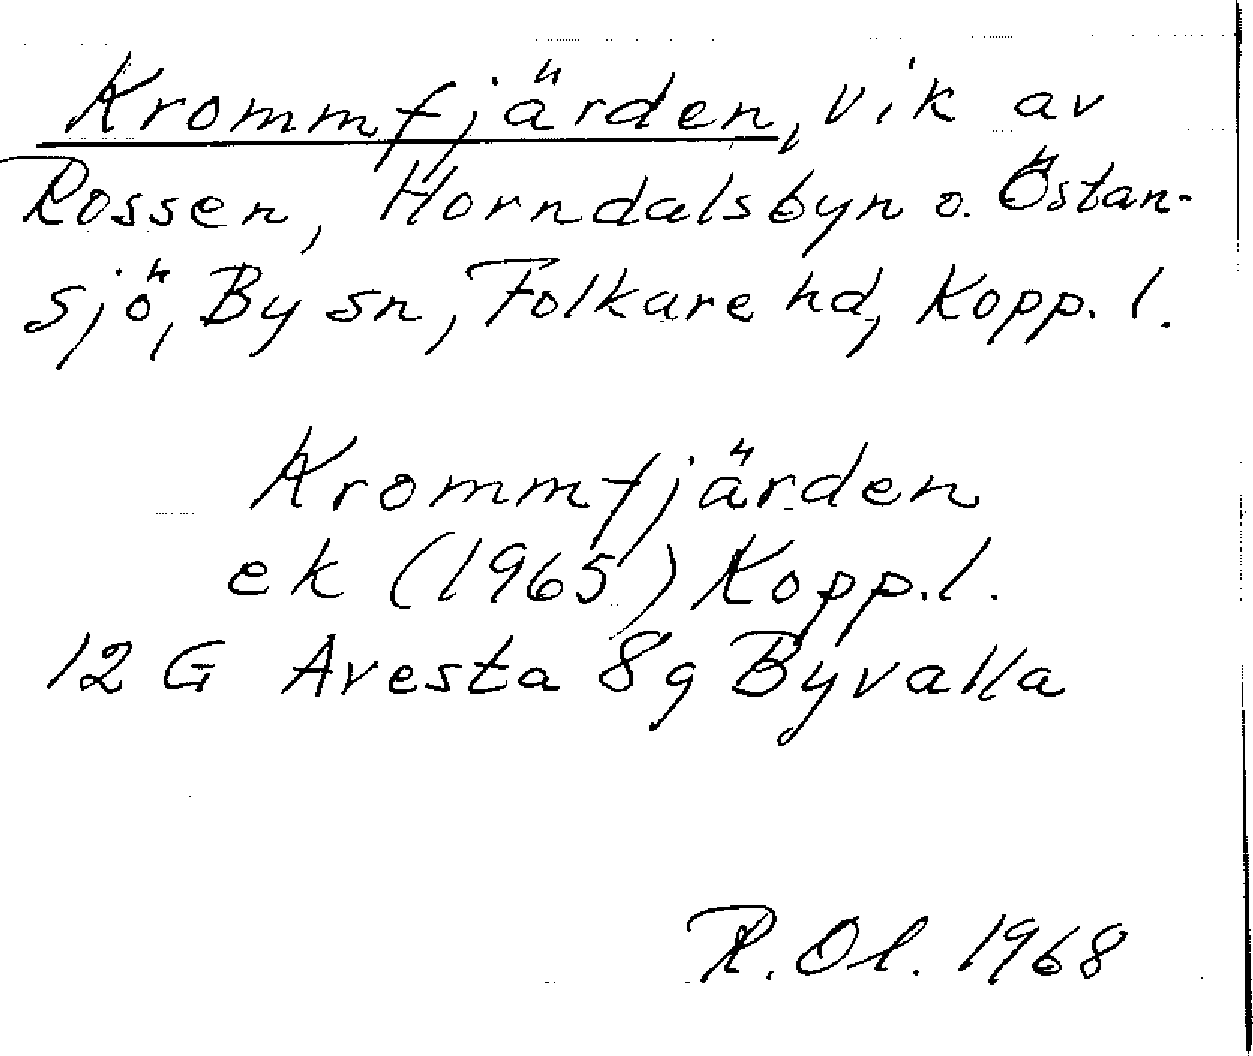 Krommfjärden, vik av
Rossen, Horndalsbyn o. Östan-
sjö, By sn, Folkare hd, Kopp. l.
Krommfjärden
ek (1965) Kopp. l.
12 G Avesta 8g Byvalla
R. Ol. 1968